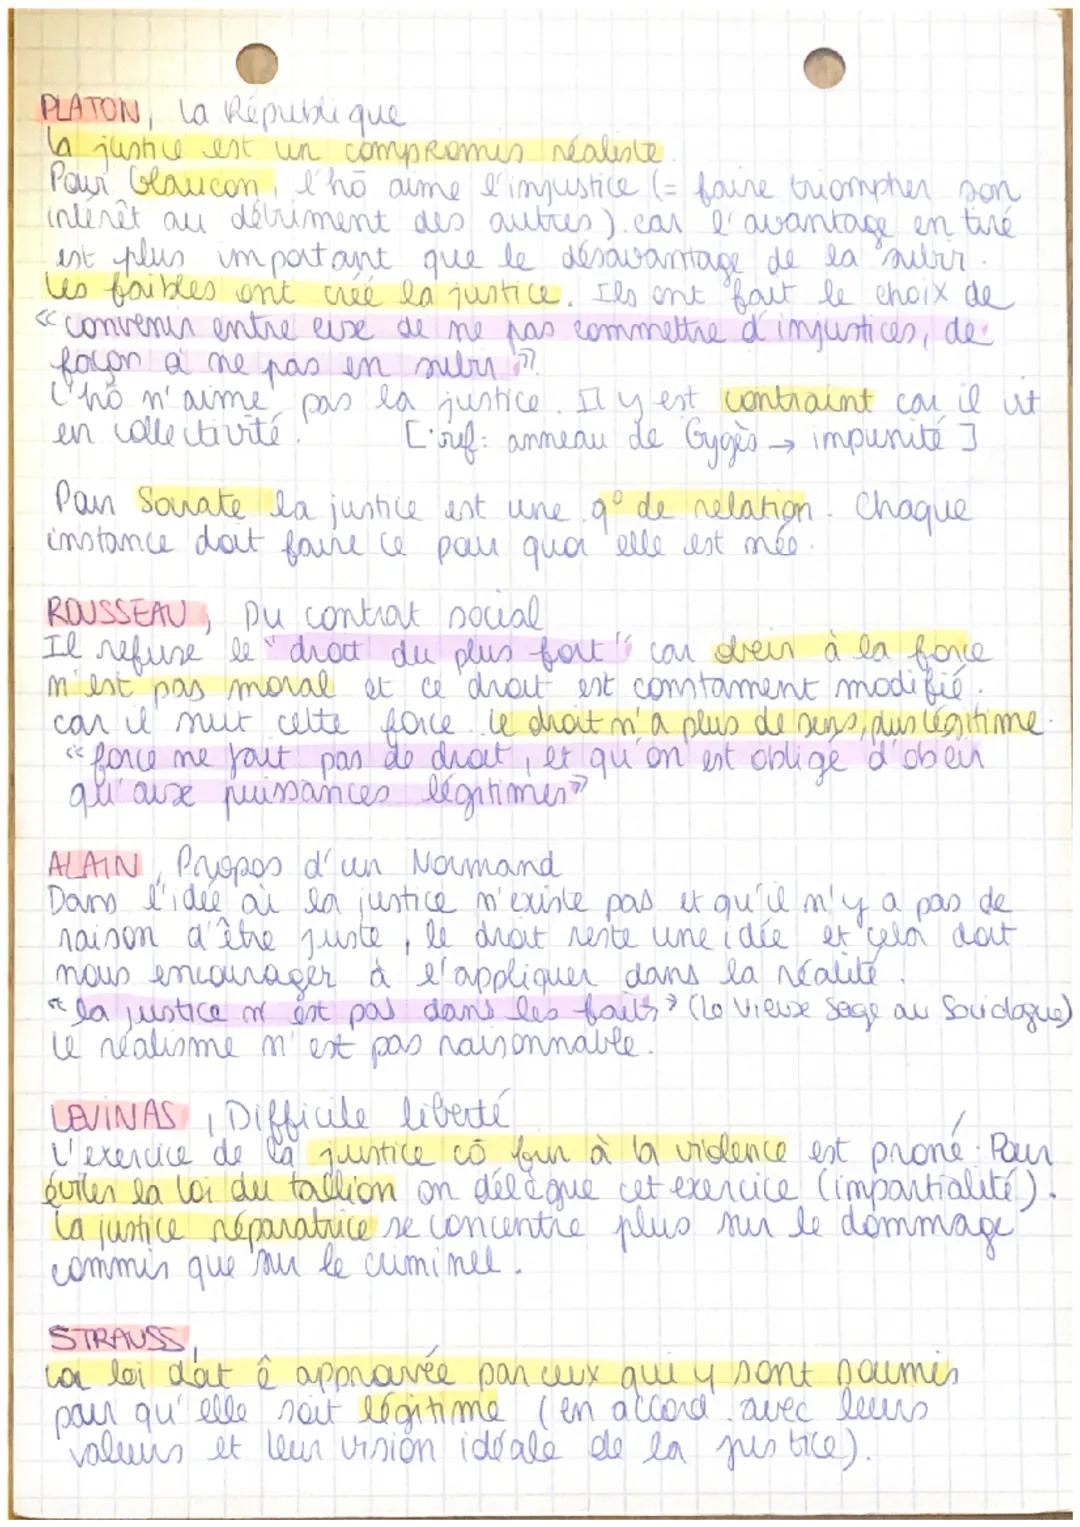 PLATON, La République
La justice est un compromis réaliste.
Pour Glaucon, l'hô aime l'injustice (= faire triompher son
intérêt au détriment des autres) car l'avantage en tiré
est plus important que le désavantage de la subir.
Les faibles ont créé la justice. Ils ont fait le choix de
« convenir entre eux de ne pas commettre d'injustices, de
façon à ne pas en subir ».
L'hô n'aime pas la justice. Il y est contraint car il vit
en collectivité. [réf: anneau de Gygès → impunité]
Pour Socrate la justice est une q° de relation. Chaque
instance doit faire ce pour quoi elle est née.
ROUSSEAU, Du contrat social
Il refuse le "droit du plus fort" car obéir à la force
n'est pas moral et ce droit est constament modifié.
car il suit cette force. Le droit n'a plus de sens, plus légitime.
« force ne fait pas de droit, et qu'on est obligé d'obéir
qu'aux puissances légitimes »
ALAIN, Propos d'un Normand
Dans l'idée où la justice n'existe pas et qu'il n'y a pas de
raison d'être juste, le droit reste une idée et cela doit
nous encourager à l'appliquer dans la réalité.
« la justice n'est pas dans les faits » (Le Vieux Sage au Sociologue)
Le réalisme n'est pas raisonnable.
LEVINAS, Difficile liberté
L'exercice de la justice cō fin à la violence est proné. Pour
éviter la loi du tallion on délègue cet exercice (impartialité).
La justice réparatrice se concentre plus sur le dommage
commis que sur le criminel.
STRAUSS,
La loi doit ê approuvée par ceux qui y sont soumis
pour qu'elle soit légitime (en accord avec leurs
valeurs et leur vision idéale de la justice).